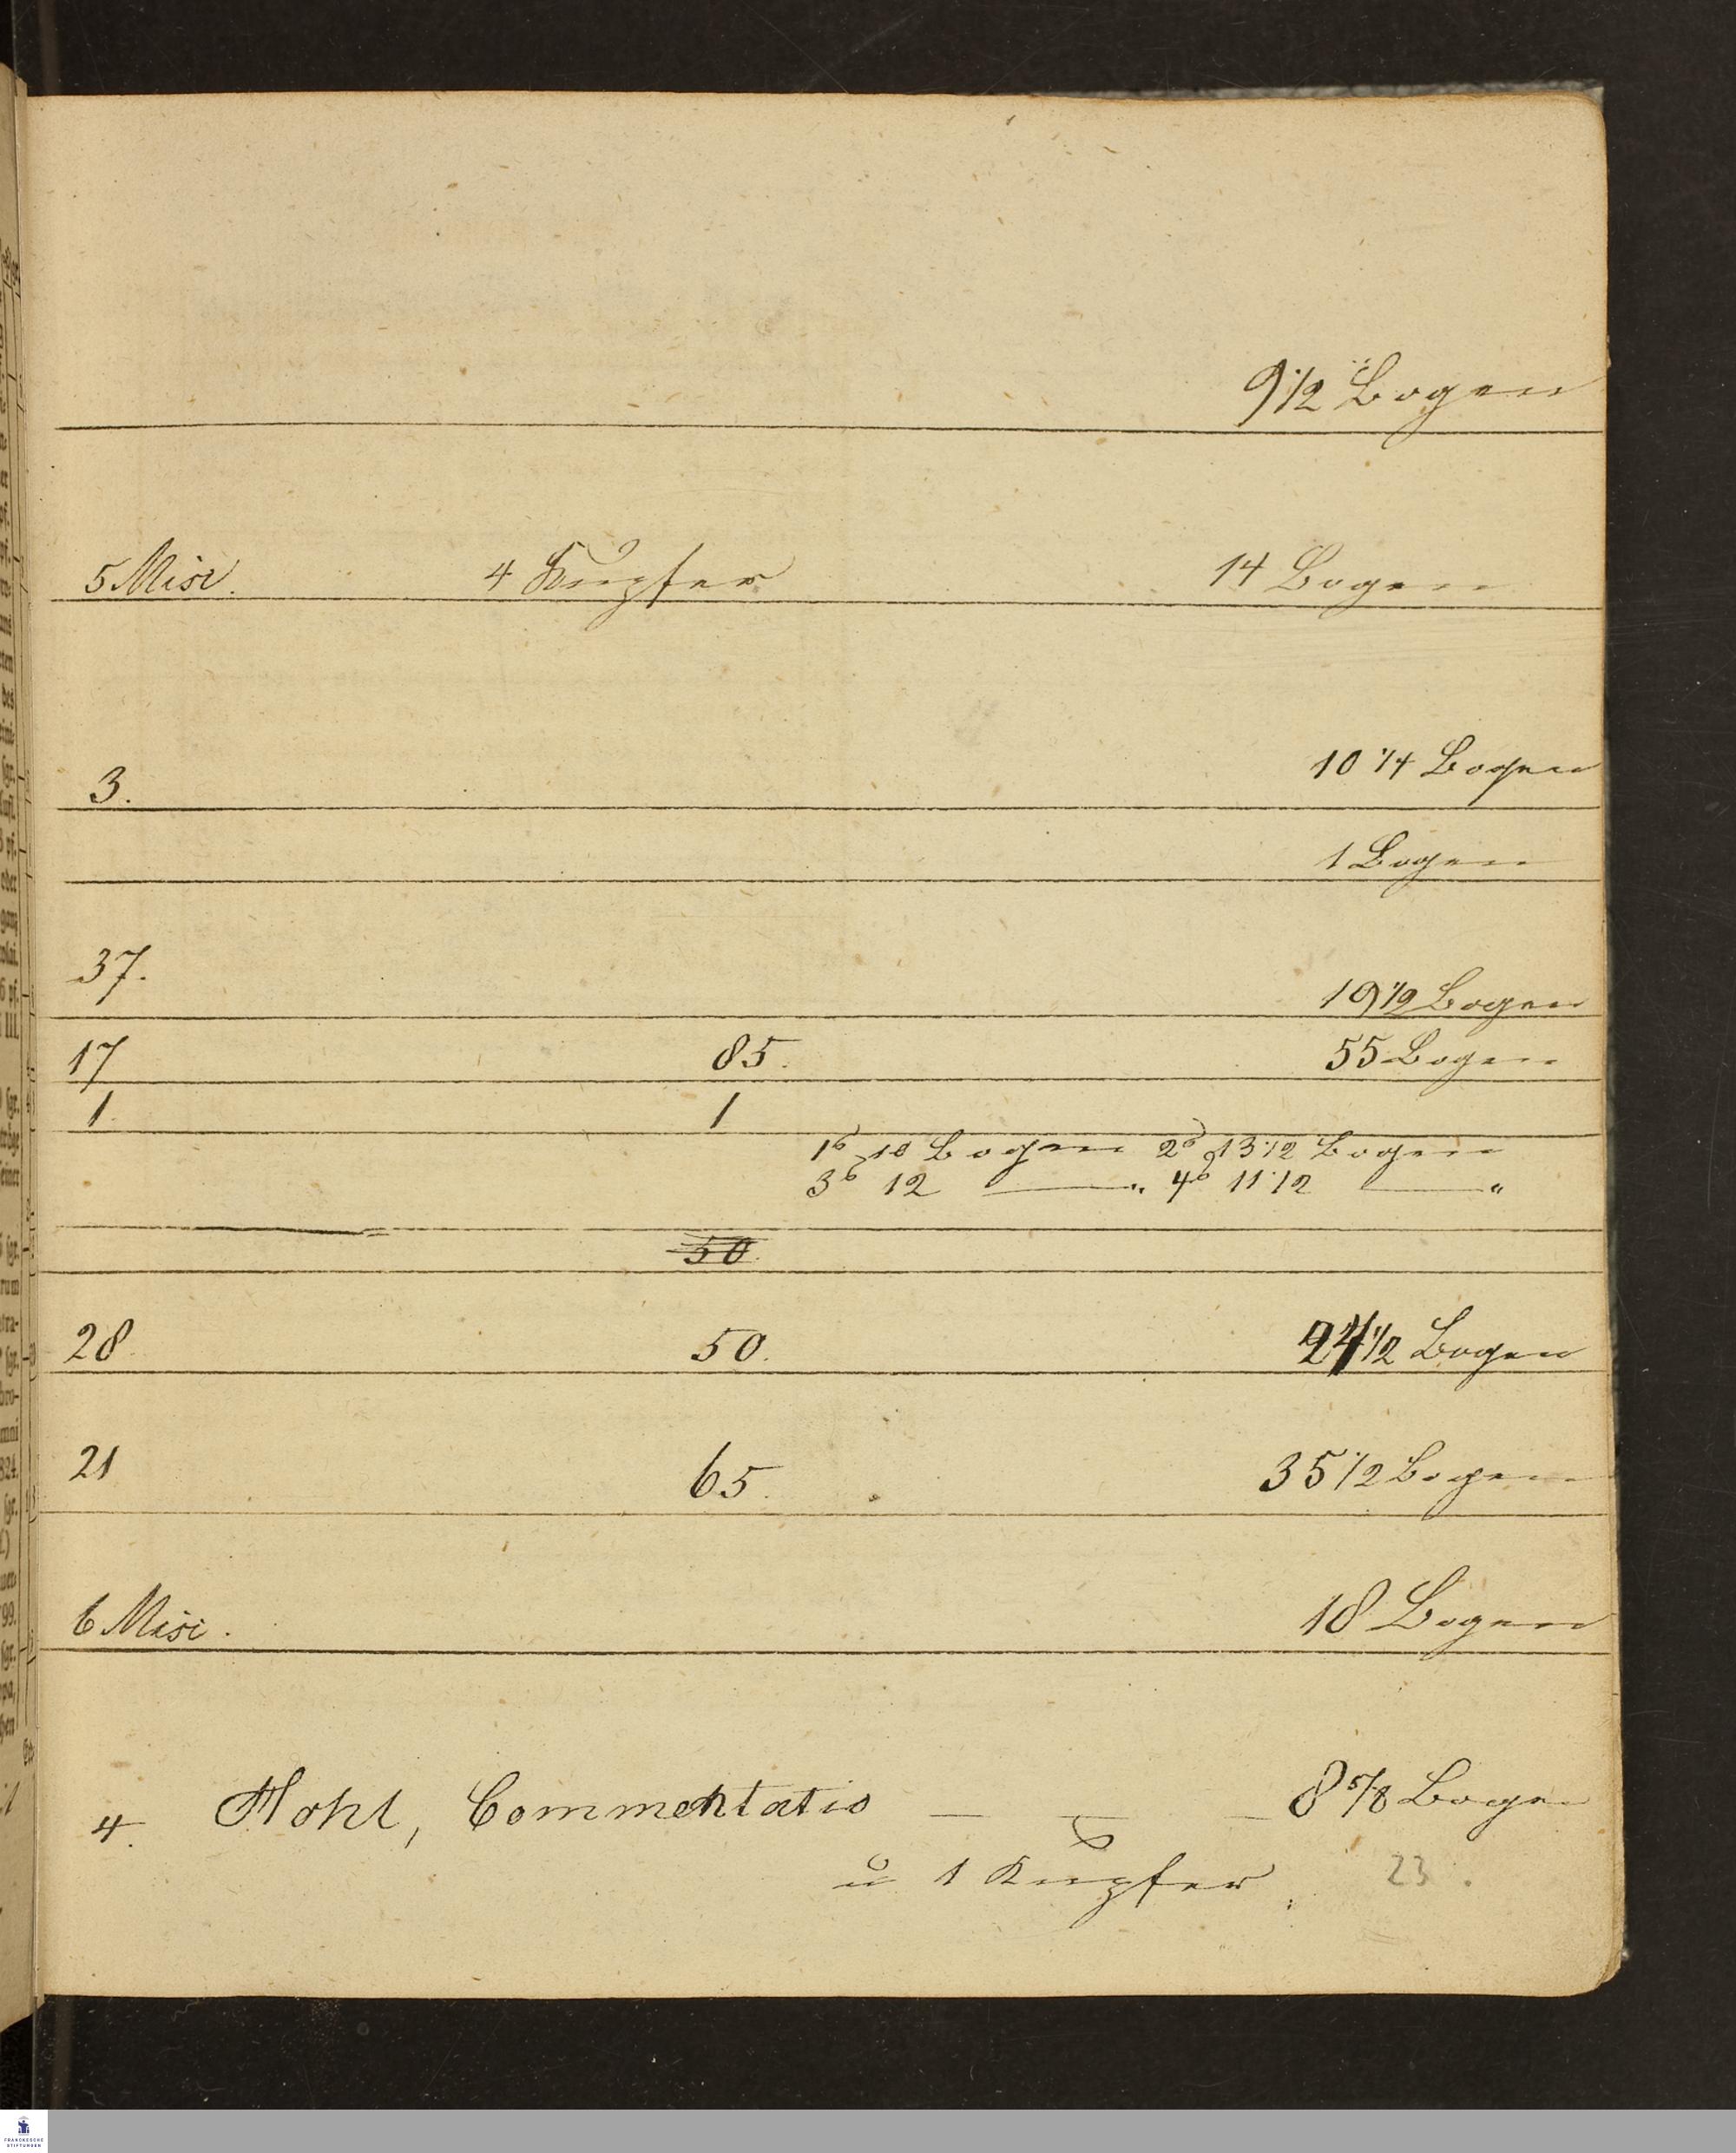 9 1/2 Bogen
5 Misc. 4 Kupfer 14 Bogen
3. 10 1/4 Bogen
1 Bogen
37. 19 1/2 Bogen
17 85. 55 Bogen
1. 1
1ʳ 10 Bogen 2ʳ 13 1/2 Bogen
3ʳ 12 — " 4ʳ 11 1/2 — "
50.
28. 50. 24 1/2 Bogen
21 65. 35 1/2 Bogen
6 Misc. 18 Bogen
4. Hohl, Commentatio — — — 8 5/8 Bogen
u 1 Kupfer. 23.
FRANCKESCHE
STIFTUNGEN